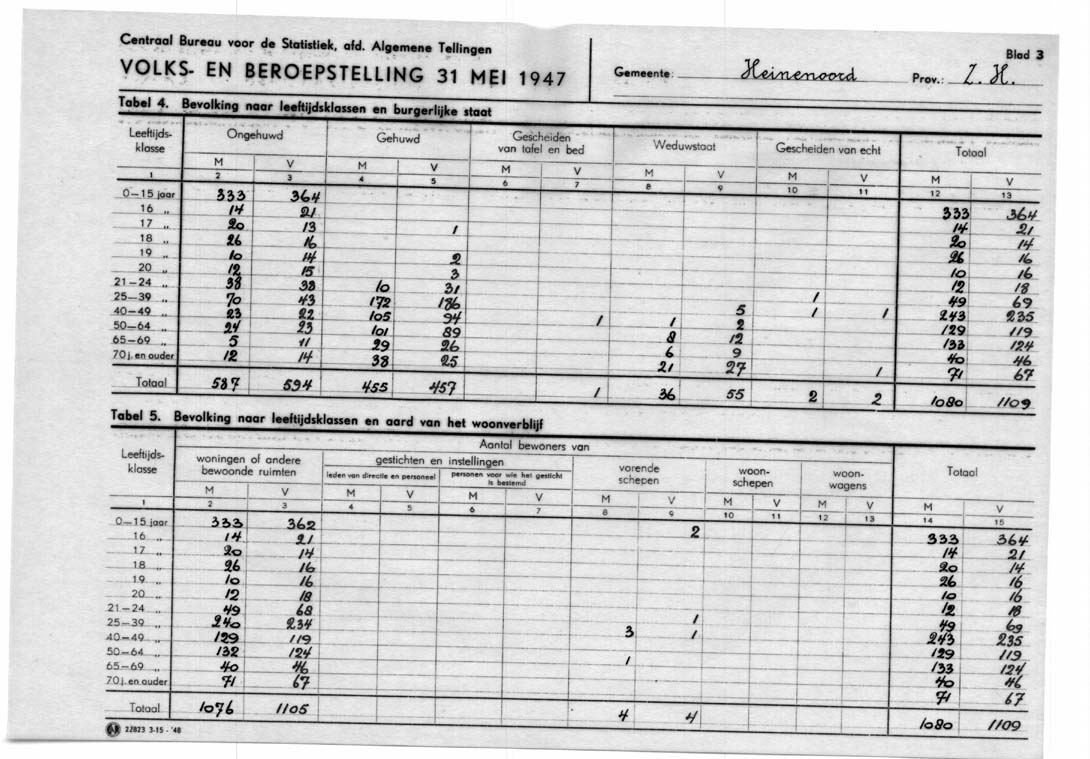 Centraal Bureau voor de Statistiek, afd. Algemene Tellingen
VOLKS- EN BEROEPSTELLING 31 MEI 1947
Gemeente: Heinenoord Prov.: Z. H.
Blad 3
Tabel 4. Bevolking naar leeftijdsklassen en burgerlijke staat
Leeftijds-klasse Ongehuwd Gehuwd Gescheiden van tafel en bed Weduwstaat Gescheiden van echt Totaal
M V M V M V M V M V M V
1 2 3 4 5 6 7 8 9 10 11 12 13
0—15 jaar 333 364 333 364
16 „ 14 21 14 21
17 „ 20 13 1 20 14
18 „ 26 16 26 16
19 „ 10 14 2 10 16
20 „ 12 15 3 12 18
21—24 „ 38 38 10 31 1 49 69
25—39 „ 70 43 172 186 5 1 1 243 235
40—49 „ 23 22 105 94 1 1 2 129 119
50—64 „ 24 23 101 89 8 12 133 124
65—69 „ 5 11 29 26 6 9 40 46
70 j. en ouder 12 14 38 25 21 27 1 71 67
Totaal 587 594 455 457 1 36 55 2 2 1080 1109
Tabel 5. Bevolking naar leeftijdsklassen en aard van het woonverblijf
Aantal bewoners van
Leeftijds-klasse woningen of andere bewoonde ruimten gestichten en instellingen varende schepen woon-schepen woon-wagens Totaal
leden van directie en personeel personen voor wie het gesticht is bestemd
M V M V M V M V M V M V M V
1 2 3 4 5 6 7 8 9 10 11 12 13 14 15
0—15 jaar 333 362 2 333 364
16 „ 14 21 14 21
17 „ 20 14 20 14
18 „ 26 16 26 16
19 „ 10 16 10 16
20 „ 12 18 12 18
21—24 „ 49 68 1 49 69
25—39 „ 240 234 3 1 243 235
40—49 „ 129 119 129 119
50—64 „ 132 124 1 133 124
65—69 „ 40 46 40 46
70 j. en ouder 71 67 71 67
Totaal 1076 1105 4 4 1080 1109
22823 3-15-'48